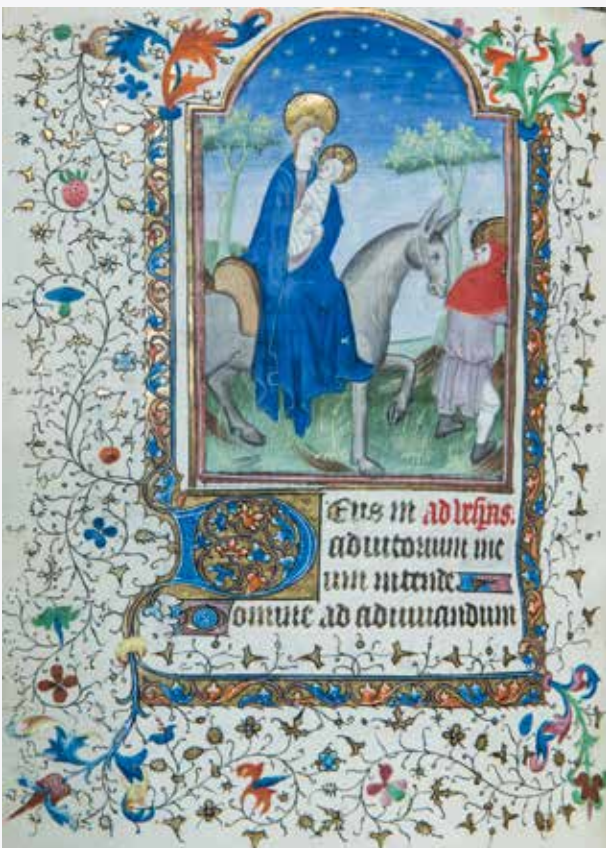 Deus in ad vesp̄as.
adiutorium me
um intende
Domine ad adiuuandum